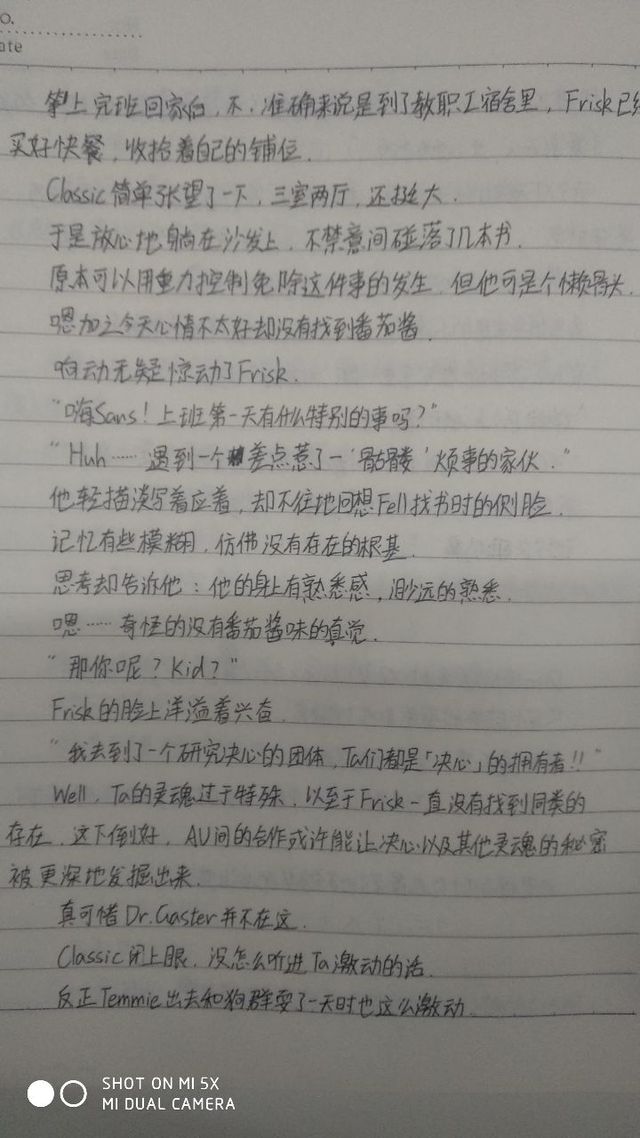 o.
ate
早上完班回家后,不,准确来说是到了教职工宿舍里,Frisk已经
买好快餐,收拾着自己的铺位.
Classic简单张望了一下,三室两厅,还挺大.
于是放心地躺在沙发上,不禁意间碰落了几本书.
原本可以用重力控制免除这件事的发生,但他可是个懒骨头.
嗯加之今天心情不太好却没有找到番茄酱.
响动无疑惊动了Frisk.
“嗨Sans!上班第一天有什么特别的事吗?”
“Huh……遇到一个差点惹了一‘骷髅’烦事的家伙.”
他轻描淡写着应着,却不住地回想Fell找书时的侧脸.
记忆有些模糊,仿佛没有存在的根基.
思考却告诉他:他的身上有熟悉感,渺远的熟悉.
嗯……奇怪的没有番茄酱味的直觉.
“那你呢?Kid?”
Frisk的脸上洋溢着兴奋.
“我去到了一个研究决心的团体,Ta们都是「决心」的拥有者!!”
Well,Ta的灵魂过于特殊,以至于Frisk一直没有找到同类的
存在.这下倒好,AU间的合作或许能让决心以及其他灵魂的秘密
被更深地发掘出来.
真可惜Dr.Gaster并不在这.
Classic闭上眼,没怎么听进Ta激动的话.
反正Temmie出去和狗群耍了一天时也这么激动.
SHOT ON MI 5X
MI DUAL CAMERA